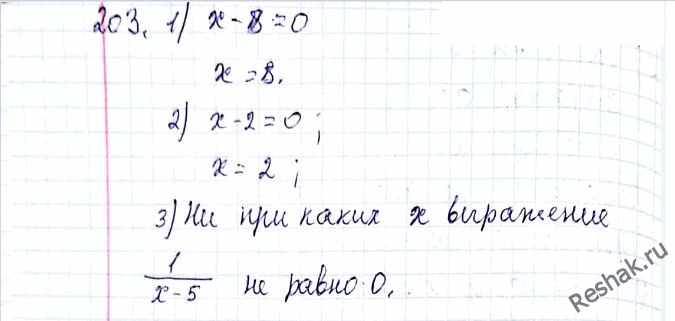 203. 1) x - 8 = 0
x = 8.
2) x - 2 = 0;
x = 2;
3) Ни при каких x выражение
1/(x - 5) не равно 0.
Reshak.ru